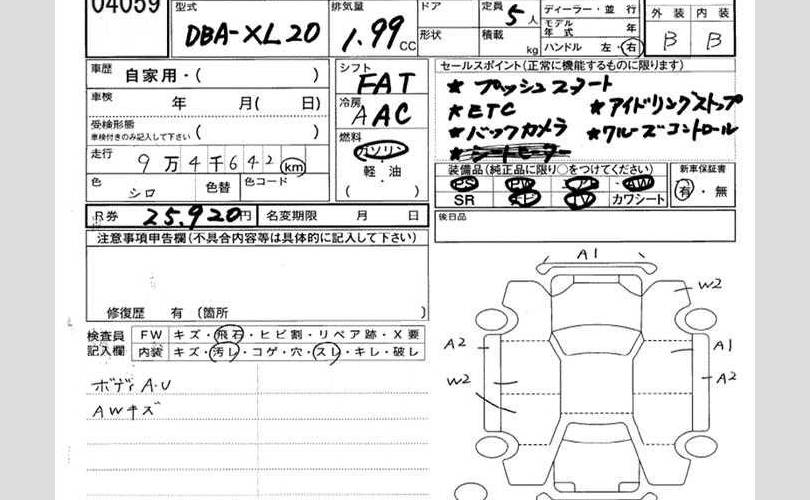 04059
型式
DBA-XL20
排気量
1.99 CC
ドア
形状
定員
5人
積載
kg
ディーラー・並 行
モデル年式 年
ハンドル 左・右
外装 内装
B B
車歴
自家用・( )
車検
年 月( 日)
受検形態
車検付きのみ記入して下さい ( )
走行
9万4千642 km
色
シロ
色替
色コード
R券 25,920円
名変期限 月 日
シフト
FAT
冷房
AAC
燃料
ガソリン
・
軽・油
( )
セールスポイント(正常に機能するものに限ります)
★ プッシュスタート
★ ETC ★ アイドリングストップ
★ バックカメラ ★ クルーズコントロール
★ シートヒーター
装備品(純正品に限り○をつけてください)
PS PW AW
SR TV カワシート
新車保証書
有・無
後日品
注意事項申告欄(不具合内容等は具体的に記入して下さい)
修復歴 有 〔箇所 〕
検査員記入欄
FW キズ・飛石・ヒビ割・リペア跡・X要
内装 キズ・汚レ・コゲ・穴・スレ・キレ・破レ
ボディA・U
AWキズ
A1
W2
A2
A1
W2
A2